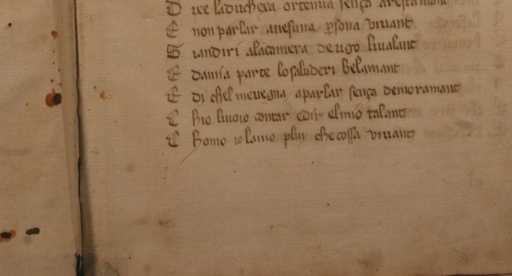 D ise laduchesa ortensia sença arestamant
E non parlar anesuna persona vivant
S iandiri alacamera de ugo livalant
E damia parte lo saluderi belamant
E di chel me vegna aparlar sença demoramant
E luo livoio contar e dir el mio talant
E homo io lamo plui che cossa vivant